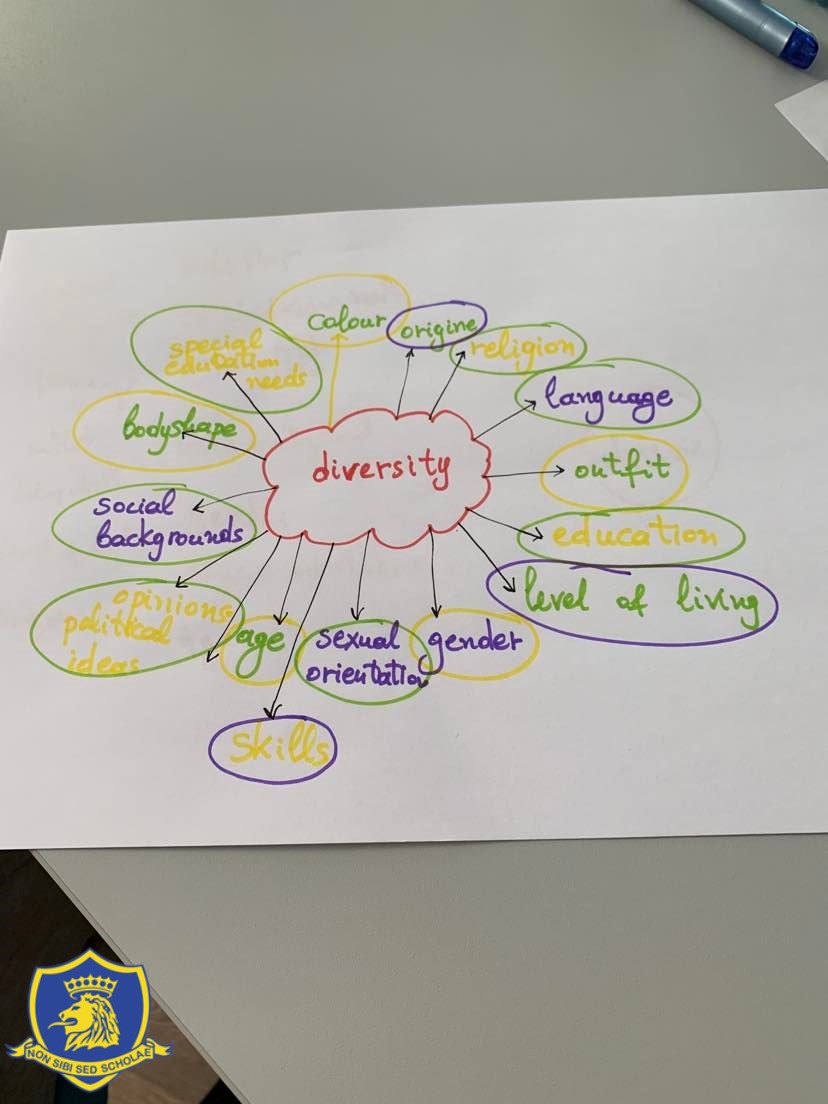 colour
origine
religion
special
education
needs
language
bodyshape
diversity
outfit
social
backgrounds
education
level of living
opinions
political
ideas
age
sexual
orientation
gender
skills
NON SIBI SED SCHOLAE